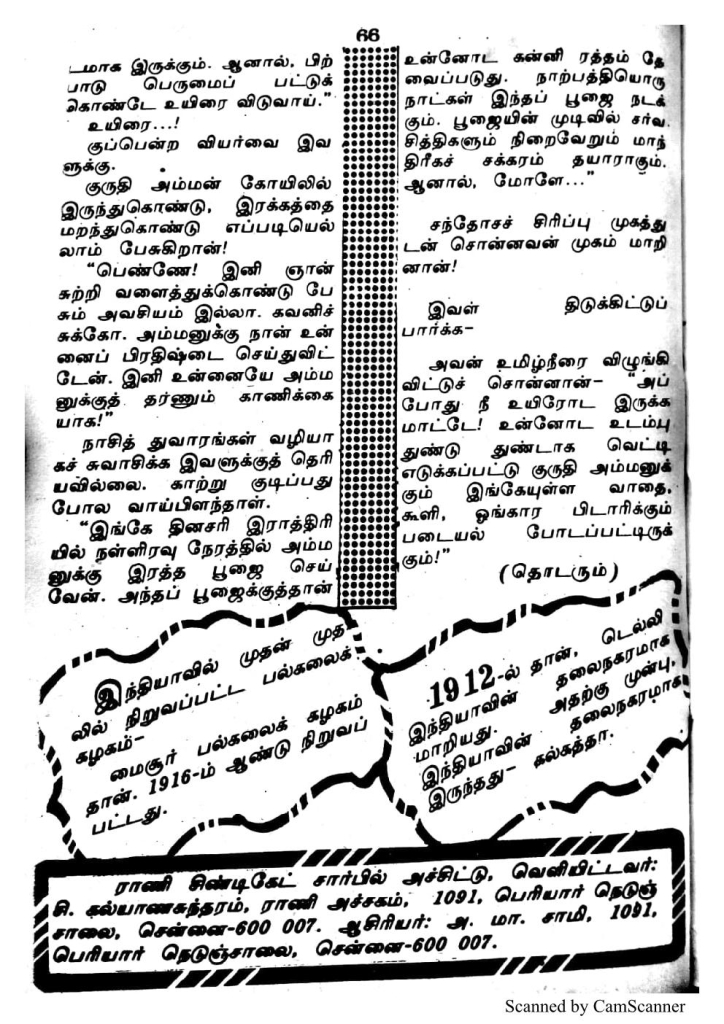 66
டமாக இருக்கும். ஆனால், பிற்
பாடு பெருமைப் பட்டுக்
கொண்டே உயிரை விடுவாய்."
உயிரை...!
குப்பென்ற வியர்வை இவ
ளுக்கு.
குருதி அம்மன் கோயிலில்
இருந்துகொண்டு, இரக்கத்தை
மறந்துகொண்டு எப்படியெல்
லாம் பேசுகிறான்!
"பெண்ணே! இனி ஞான்
சுற்றி வளைத்துக்கொண்டு பே
சும் அவசியம் இல்லா. கவனிச்
சுக்கோ. அம்மனுக்கு நான் உன்
னைப் பிரதிஷ்டை செய்துவிட்
டேன். இனி உன்னையே அம்ம
னுக்குத் தர்ணும் காணிக்கை
யாக!"
நாசித் துவாரங்கள் வழியா
கச் சுவாசிக்க இவளுக்குத் தெரி
யவில்லை. காற்று குடிப்பது
போல வாய்பிளந்தாள்.
"இங்கே தினசரி இராத்திரி
யில் நள்ளிரவு நேரத்தில் அம்ம
னுக்கு இரத்த பூஜை செய்
வேன். அந்தப் பூஜைக்குத்தான்
உன்னோட கன்னி ரத்தம் தே
வைப்படுது. நாற்பத்தியொரு
நாட்கள் இந்தப் பூஜை நடக்
கும். பூஜையின் முடிவில் சர்வ
சித்திகளும் நிறைவேறும் மாந்
திரீகச் சக்கரம் தயாராகும்.
ஆனால், மோளே..."
சந்தோசச் சிரிப்பு முகத்து
டன் சொன்னவன் முகம் மாறி
னான்!
இவள் திடுக்கிட்டுப்
பார்க்க-
அவன் உமிழ்நீரை விழுங்கி
விட்டுச் சொன்னான்- "அப்
போது நீ உயிரோட இருக்க
மாட்டே! உன்னோட உடம்பு
துண்டு துண்டாக வெட்டி
எடுக்கப்பட்டு குருதி அம்மனுக்
கும் இங்கேயுள்ள வாதை,
கூளி, ஓங்கார பிடாரிக்கும்
படையல் போடப்பட்டிருக்
கும்!"
(தொடரும்)
இந்தியாவில் முதன் முத
லில் நிறுவப்பட்ட பல்கலைக்
கழகம்-
மைசூர் பல்கலைக் கழகம்
தான். 1916-ம் ஆண்டு நிறுவப்
பட்டது.
1912-ல் தான், டெல்லி
இந்தியாவின் தலைநகரமாக
மாறியது. அதற்கு முன்பு,
இந்தியாவின் தலைநகரமாக
இருந்தது- கல்கத்தா.
ராணி சிண்டிகேட் சார்பில் அச்சிட்டு, வெளியிட்டவர்:
சி. கல்யாணசுந்தரம், ராணி அச்சகம், 1091, பெரியார் நெடுஞ்
சாலை, சென்னை-600 007. ஆசிரியர்: அ. மா. சாமி, 1091,
பெரியார் நெடுஞ்சாலை, சென்னை-600 007.
Scanned by CamScanner